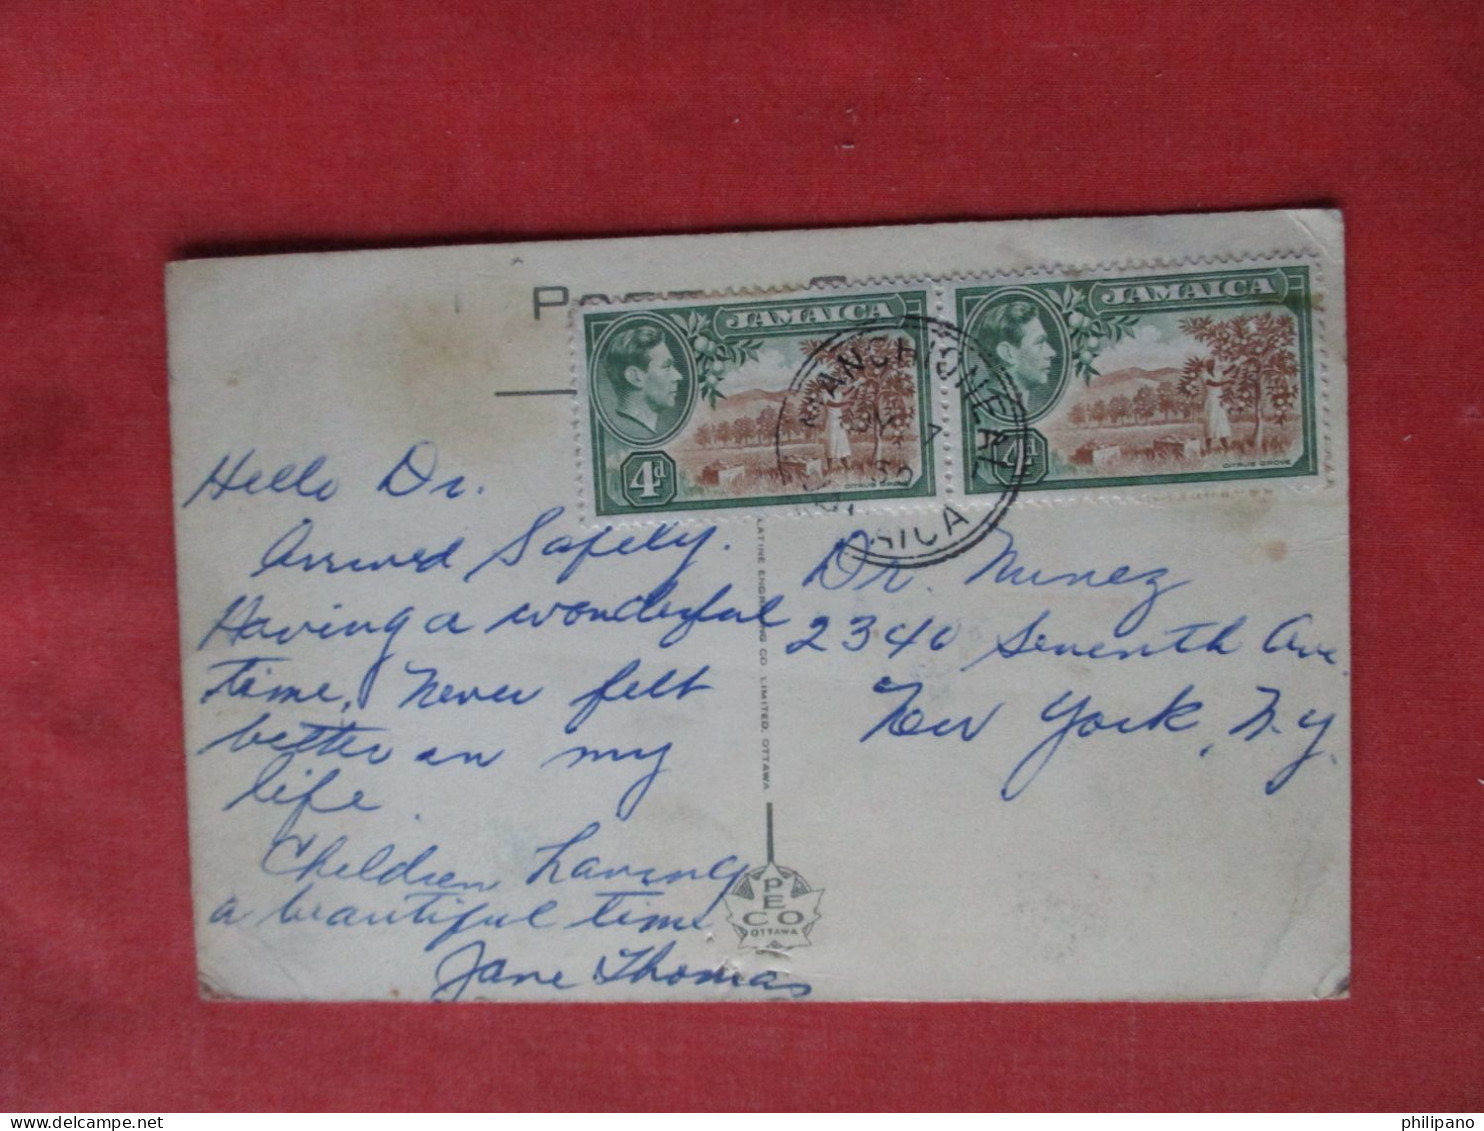 JAMAICA
4d
CITRUS GROVE
JAMAICA
4d
CITRUS GROVE
MANCHIONEAL
7
Hello Dr.
Arrived Safely.
Having a wonderful
time. Never felt
better in my
life.
Children having
a beautiful time
Jane Thomas
Dr. Nunez
2340 Seventh Ave.
New York, N.Y.
ENGRAVING CO. LIMITED, OTTAWA
PECO
OTTAWA
philipano